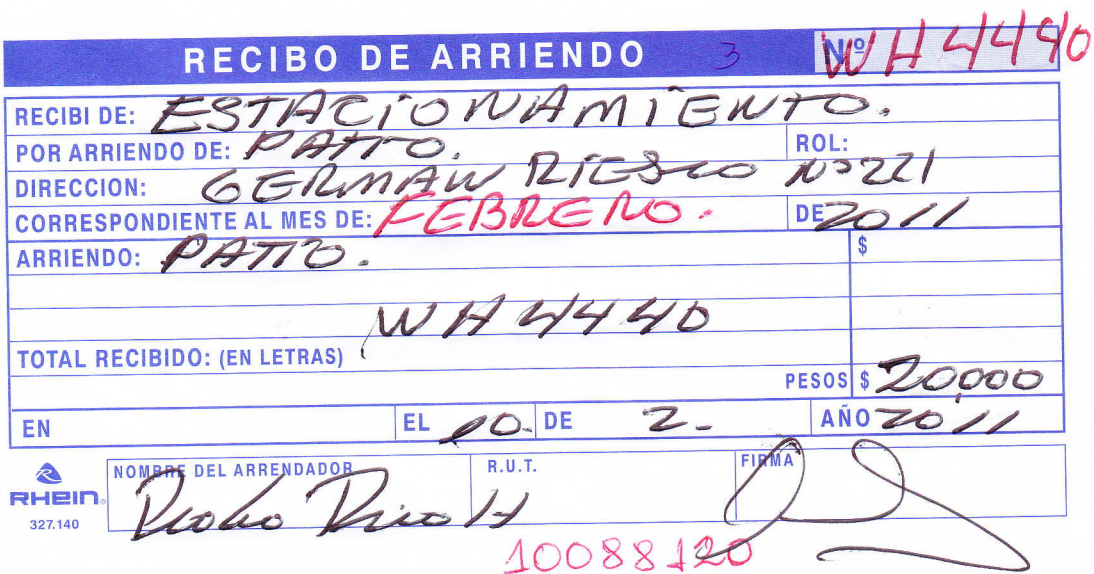 RECIBO DE ARRIENDO 3 Nº WH4440
RECIBI DE: ESTACIONAMIENTO.
POR ARRIENDO DE: PATIO. ROL:
DIRECCION: GERMAN RIESCO Nº221
CORRESPONDIENTE AL MES DE: FEBRERO. DE 2011
ARRIENDO: PATIO. $
WH4440
TOTAL RECIBIDO: (EN LETRAS)
PESOS $ 20,000
EN EL 10. DE 2. AÑO 2011
NOMBRE DEL ARRENDADOR R.U.T. FIRMA
RHEIN
327.140
10088120